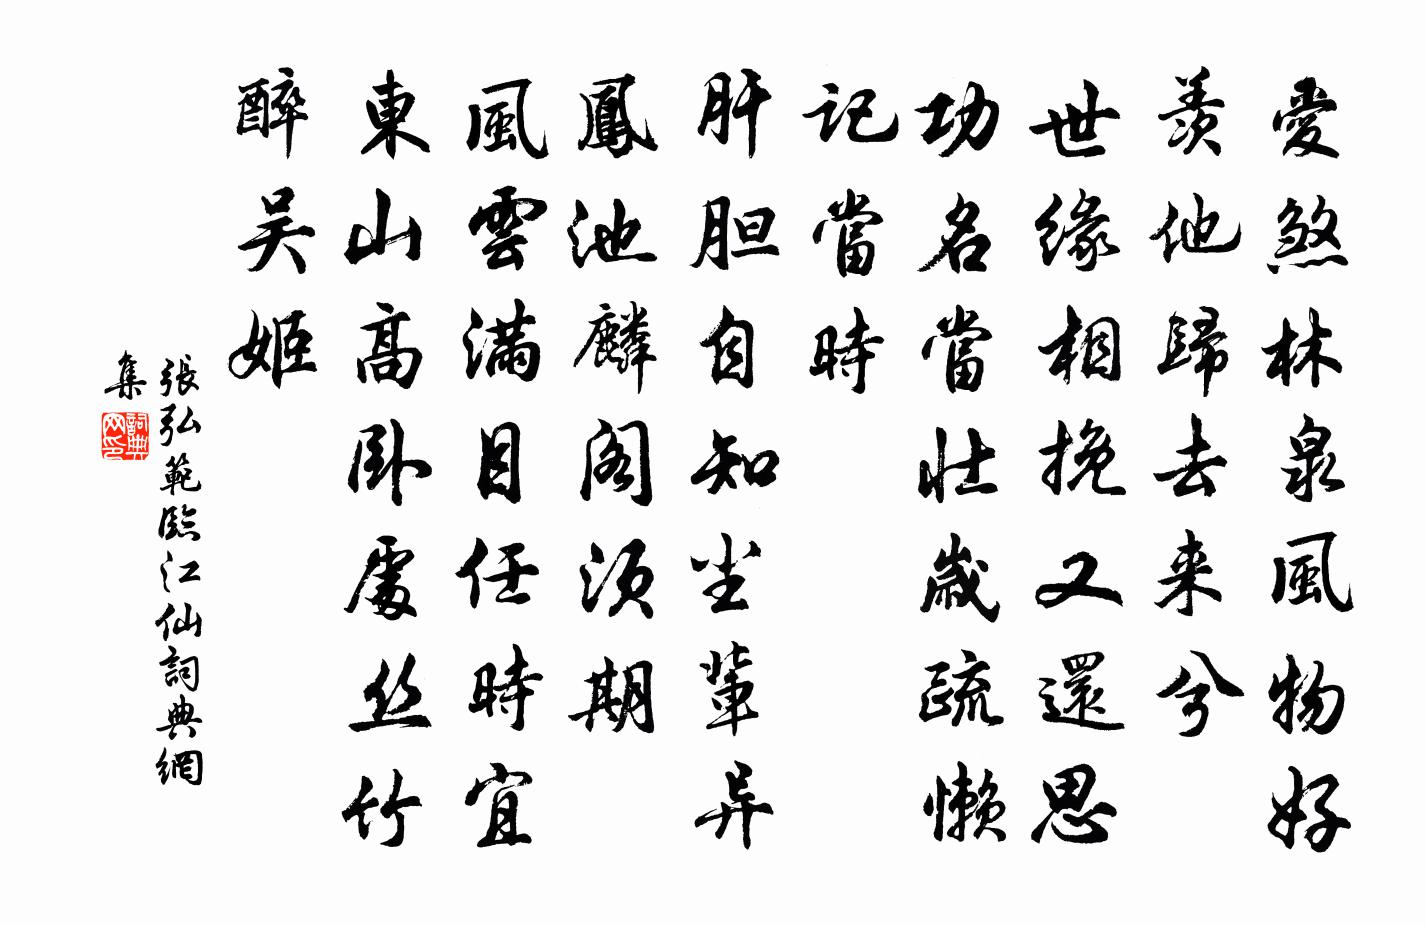 愛煞林泉風物好
羨他歸去来兮
世缘相挽又還思
功名當壯歲疏懶
記當時
肝胆自知坐輩异
鳳池麟阁須期
風雲满目任時宜
東山高卧處丝竹
醉吴姬
張弘範臨江仙詞典網
集
詞典網印